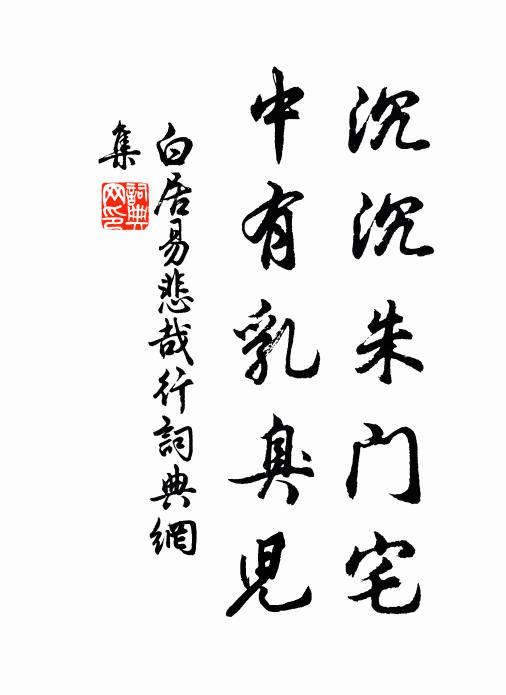 沉沉朱门宅
中有乳臭児
白居易悲哉行詞典網
集
詞典网印